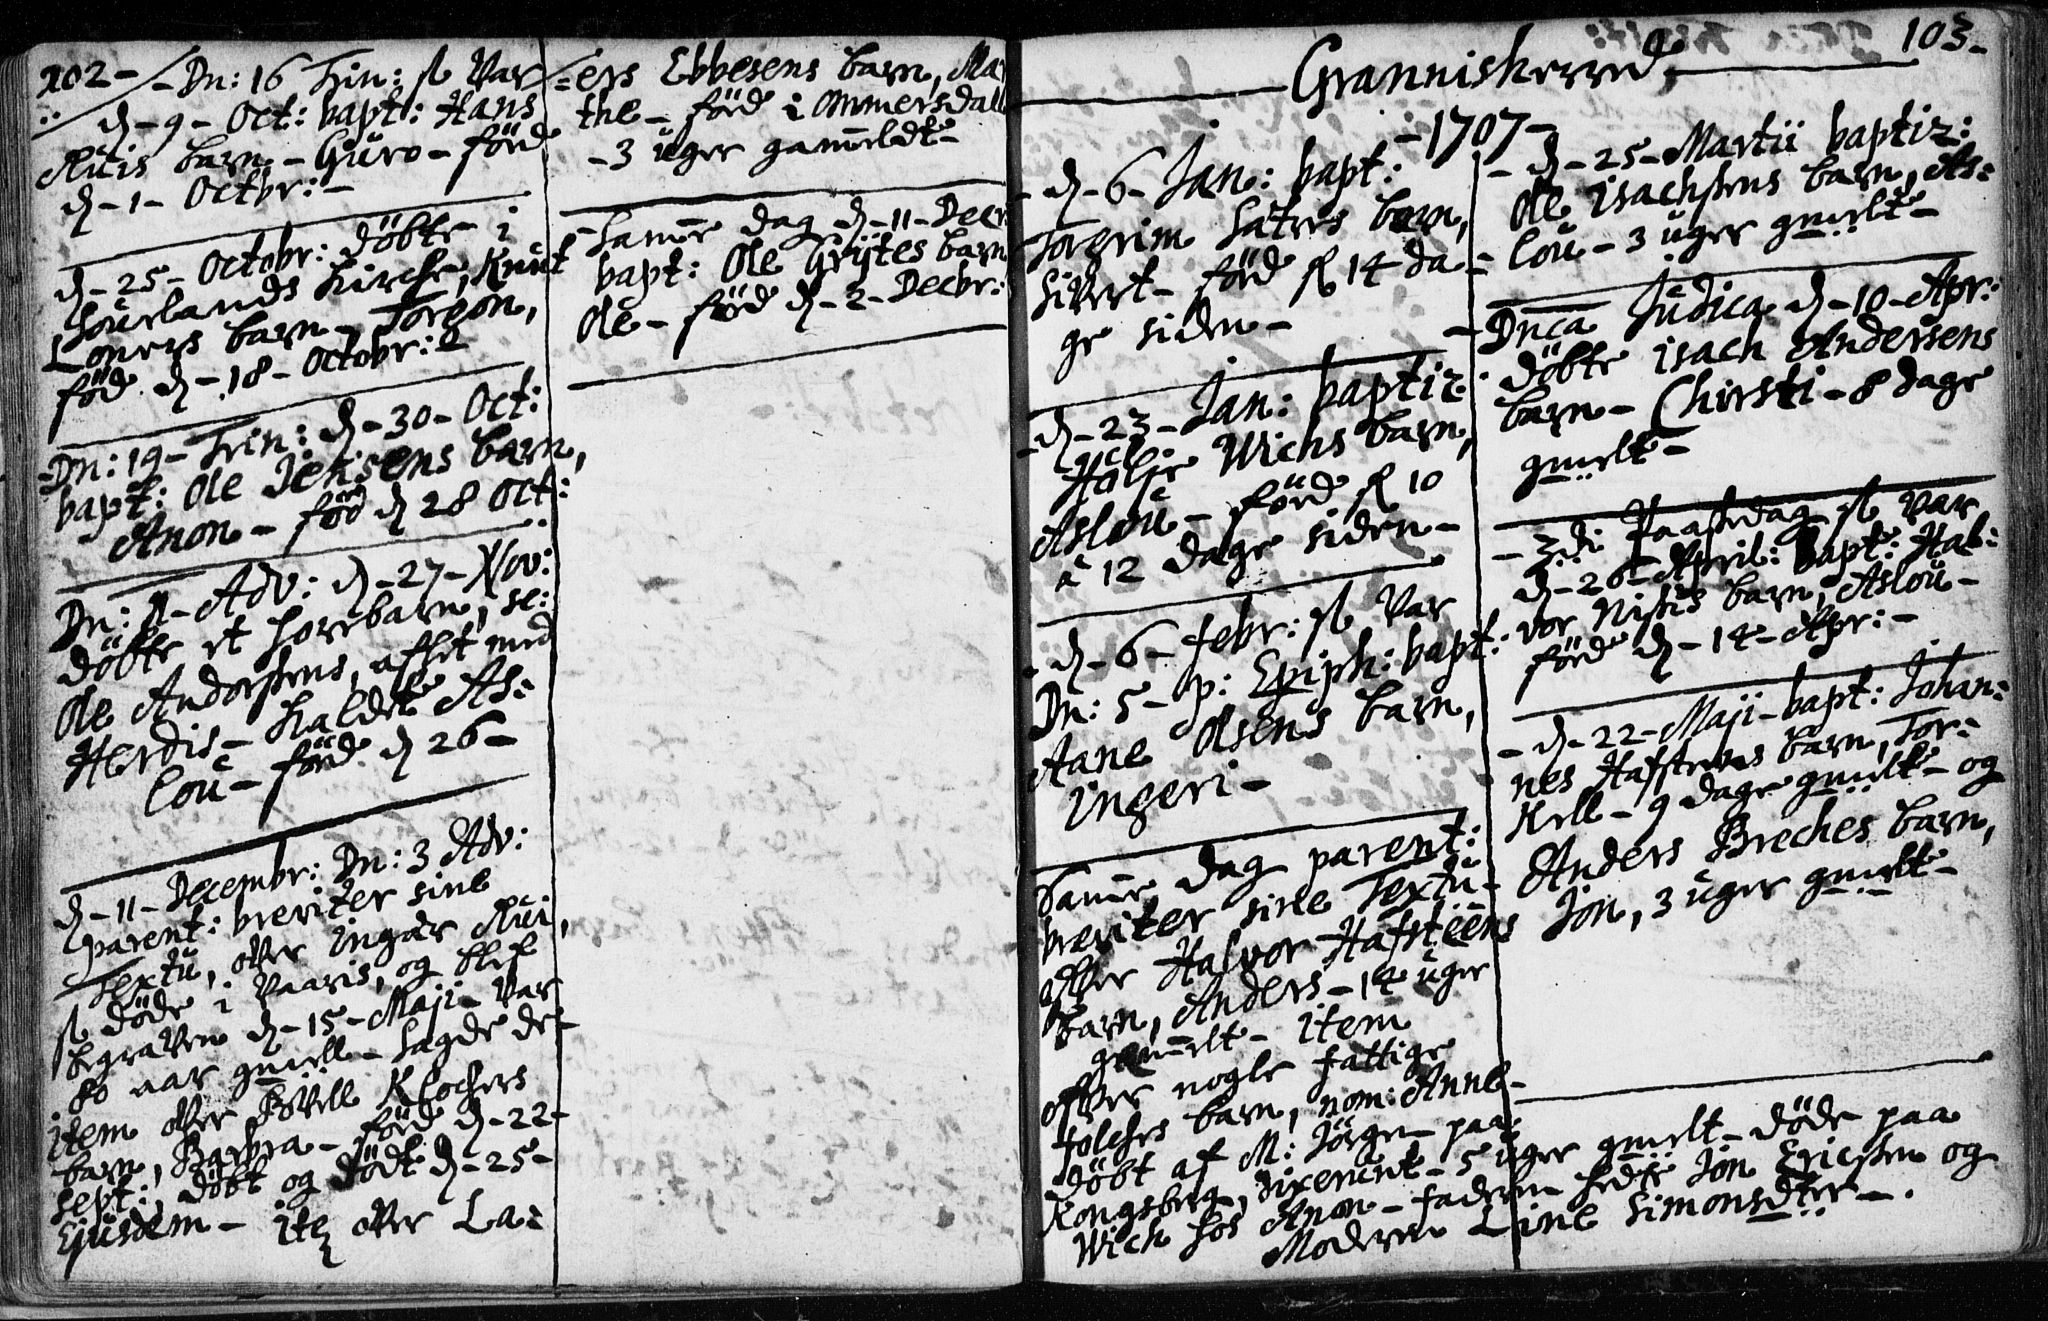 102 - Dn: 16 Trin: st var
d - 9 - Oct: bapt: Hans
Ruis barn - Guro - förd
d - 1 - Octbr: -
d - 25 - Octobr: döbte i
Hourlands kirche, Knut
Loners barn - Torgon,
föd d - 18 - Octobr:
Dn: 19 - Trin: d - 30 - Oct:
bapt: Ole Jensens barn,
Anon - förd d 28 Oct:
Dn: 1 - Adv: d - 27 - Nov:
döbte et horebarn, sc:
Ole Anderssens, aflet med
Herdis - kaldet As:
lou - förd d 26 -
d - 11 - Decembr: Dn: 3 Adv:
parent: breviter sine
Textu, over Ingår Rui,
st döde i Vaaris, og blef
begraven d - 15 - Maji - var
80 aar guell - sagde de -
item over Povell Klochers
barn, Barbra - förd d - 22 -
Sept:, döbt og dödt d - 25 -
Ejusdem - ite over La=
=ers Ebbesens barn, Mar
the - förd i Ommersdall
- 3 uger gammeldt -
- Samme dag d - 11 - Decr
bapt: Ole Grytes barn
Ole - förd d - 2 - Decbr:
Granniskerred 103 -
- 1707 -
- d - 6 - Jan: bapt:
Torgrim Satres barn,
Sivert - förd st 14 da=
ge siden -
- d - 23 - Jan: baptiz:
Holje Wichs barn,
Aslou - förd st 10
à 12 dage siden -
- d - 6 - febr: st var
Dn: 5 - p: Epiph: bapt:
Aane Olsens barn,
Ingeri -
Samme dag parent:
breviter sine Textu -
offver Halvor Hafsteens
barn, Anders - 14 uger
gammelt - item
offver nogle fattige
folches barn, nom: Anne -
döbt af M: Jörgen paa
Kongsberg, vixerunt - 5 uger gmelt - döde paa
Wich hos Anon - faderen hedte Jon Ericssen og
Moderen Line Simonsdter - .
- d - 25 - Martii baptiz:
Ole Isachsens barn, As=
lou - 3 uger gmelt -
- Dnca Judica d - 10 - Apr:
döbte Isach Andersens
barn - Chirsti - 8 dage
gmelt -
- 3die Paaskedag st var
d - 26 - April: bapt: Hal:
vor Nisius barn, Aslou -
förd d - 14 - Apr: -
- d - 22 - Maji - bapt: Johan=
nes Hafsteens barn, Tor=
kell - 9 dage gmelt - og
Anders Breches barn,
Jon, 3 uger gmelt -